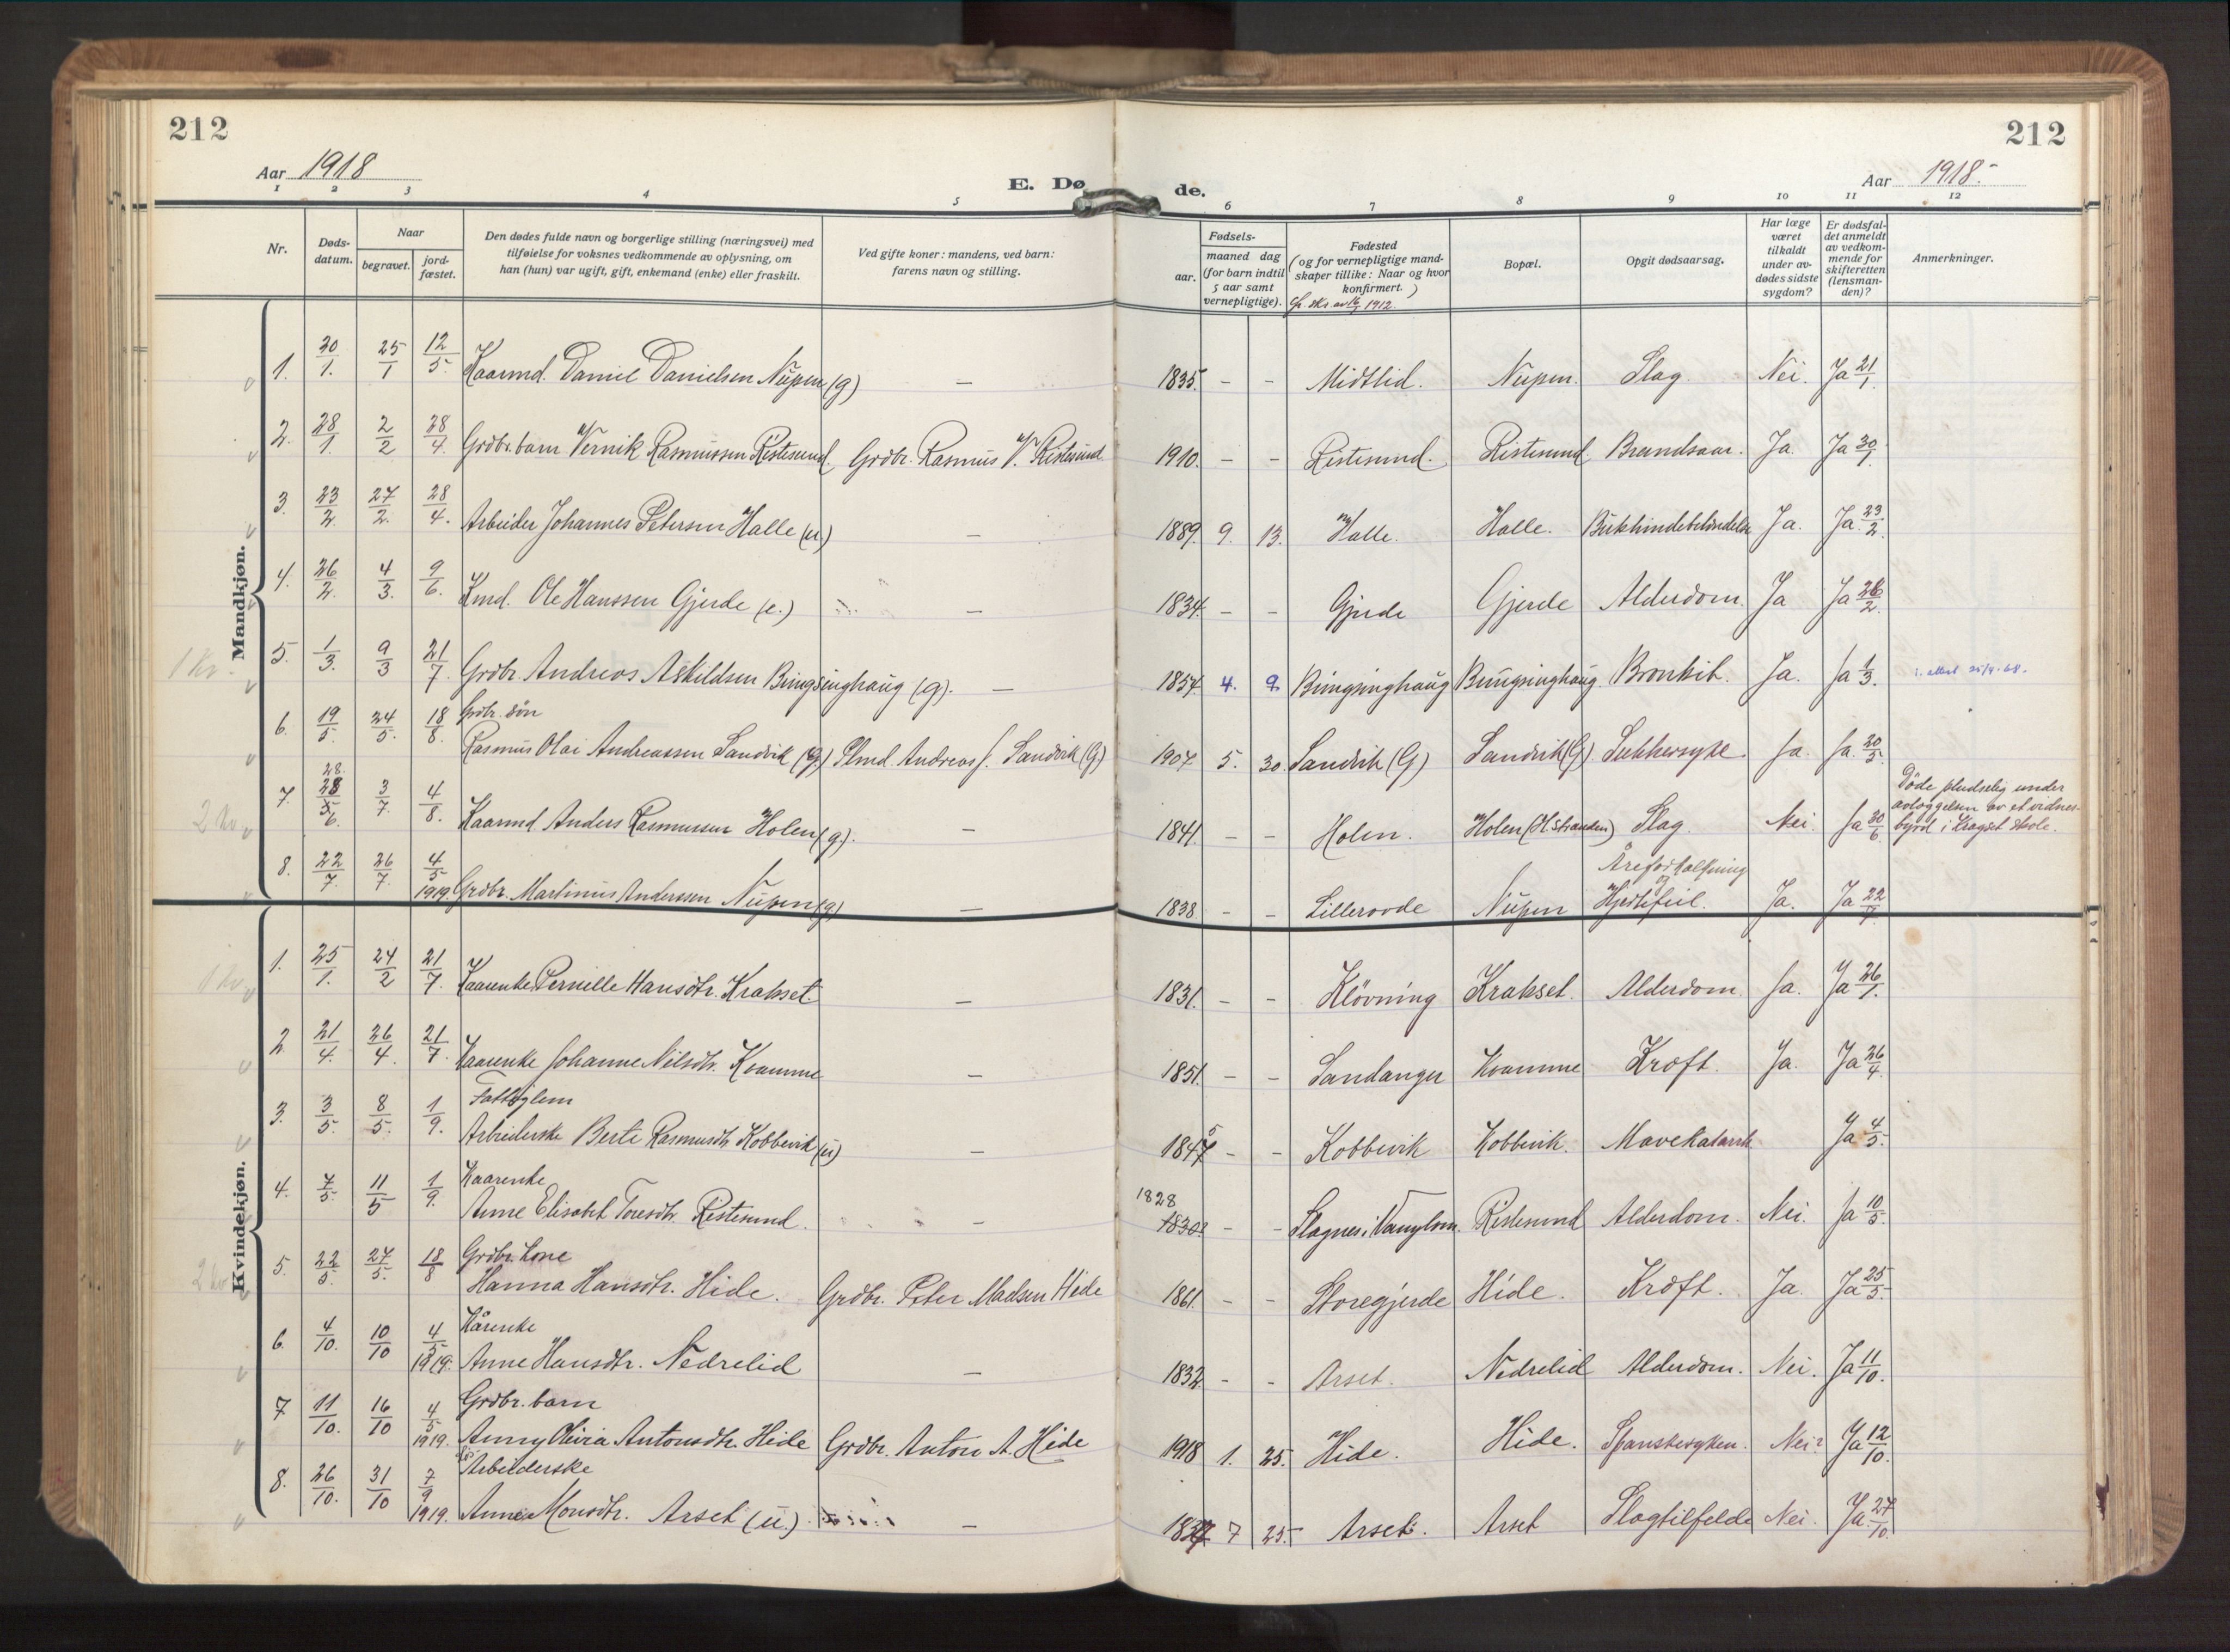 212
212
Aar 1918
E. Dø
de.
Aar 1918.
1 2 3 4 5 6 7 8 9 10 11 12
Nr.
Døds-
datum.
Naar
begravet.
jord-
fæstet.
Den dødes fulde navn og borgerlige stilling (næringsvei) med
tilføielse for voksnes vedkommende av oplysning, om
han (hun) var ugift, gift, enkemand (enke) eller fraskilt.
Ved gifte koner: mandens, ved barn:
farens navn og stilling.
Fødsels-
aar.
maaned dag
(for barn indtil
5 aar samt
vernepligtige).
Fødested
(og for vernepligtige mand-
skaper tillike: Naar og hvor
konfirmert.)
1912.
Bopæl.
Opgit dødsaarsag.
Har læge
været
tilkaldt
under av-
dødes sidste
sygdom?
Er dødsfal-
det anmeldt
av vedkom-
mende for
skifteretten
(lensman-
den)?
Anmerkninger.
Mandkjøn.
1. 20/1. 25/1 12/5. Kaarmd. Daniel Danielsen Nupen (g) — 1835 - - Midtlid. Nupen. Slag. Nei. Ja 21/1.
2. 28/1. 2/2 28/4. Grdbr. barn Vernik Rasmussen Ristesund. Grdbr. Rasmus V. Ristesund 1910. - - Ristesund. Ristesund Brandsaar. Ja. Ja 30/1.
3. 23/2. 27/2. 28/4. Arbeider Johannes Petersen Halle (u.) — 1889. 9. 13. Halle. Halle. Bukhindebetændelse Ja. Ja. 23/2.
4. 26/2. 4/3. 9/6. Kmd. Ole Hanssen Gjerde (e.) — 1834. - - Gjerde Gjerde Alderdom. Ja Ja 26/2.
5. 1/3. 9/3 21/7. Grdbr. Andreas Askildsen Bringsinghaug (g). — 1854 4. 9. Bringsinghaug Bringsinghaug. Bronkit. Ja. Ja 1/3.
6. 19/5. 24/5. 18/8. Grdbr. søn
Rasmus Olai Andreassen Sandvik (G.) Plmd. Andreas J. Sandvik (G) 1907. 5. 30. Sandvik (G) Sandvik (G) Sukkersyke. Ja. Ja. 20/5.
28.
7. 28/6. 3/7. 4/8. Kaarmd. Anders Rasmussen Holen (g). — 1841. - - Holen. Holen (H. Stranden) Slag. Nei. Ja 30/6
Døde pludselig under
avlæggelsen av et vidnes-
byrd i Kragset skole.
8. 22/7. 26/7. 4/5 1919. Grdbr. Martinus Anderssen Nupen (g) — 1838 - - Lillerovde Nupen Åreforkalkning
og
Hjertefeil. Ja. Ja 22/7.
Kvindekjøn.
1. 25/1. 24/2 21/7. Kaarenke Pernille Hansdtr. Krakset. — 1831. - - Kløvning Krakset. Alderdom Ja. Ja 26/1.
2. 21/4. 26/4. 21/7. Kaarenke Johanne Nilsdtr. Kvamme — 1851. - - Sandanger Kvamme Kræft. Ja. Ja 26/4.
3. 3/5. 8/5. 1/9. Fattiglem
Arbeiderske Berte Rasmusdtr. Kobbevik (u) — 1847 5 - - Kobbevik Kobbevik. Mavekatarrh Ja 4/5.
4. 7/5. 11/5 1/9. Kaarenke
Anne Elisabet Toresdtr. Ristesund. — 1828
1830. - - Slagnes i Vanylven. Ristesund Alderdom. Nei. Ja 10/5.
5. 22/5. 27/5. 18/8 Grdbr. kone
Hanna Hansdtr. Hide. Grdbr. Peter Madsen Hide 1861. - - Storegjerde Hide. Kræft. Ja. Ja 25/5.
6. 4/10. 10/10 4/5 1919. Kårenke
Anne Hansdtr. Nedrelid — 1832 - - Arset. Nedrelid Alderdom. Nei. Ja 11/10.
7 11/10. 16/10 4/5 1919. Grdbr. barn
Anny Olivia Antonsdtr. Hide Grdbr. Anton A. Hide 1918 1. 25. Hide. Hide. Spanskesyken. Nei? Ja 12/10.
8. 26/10. 31/10 7/9 1919. Arbeiderske
Anne Monsdtr. Arset (u.) — 1837 7 25. Arset. Arset Slagtilfelde Nei. Ja. 27/10.